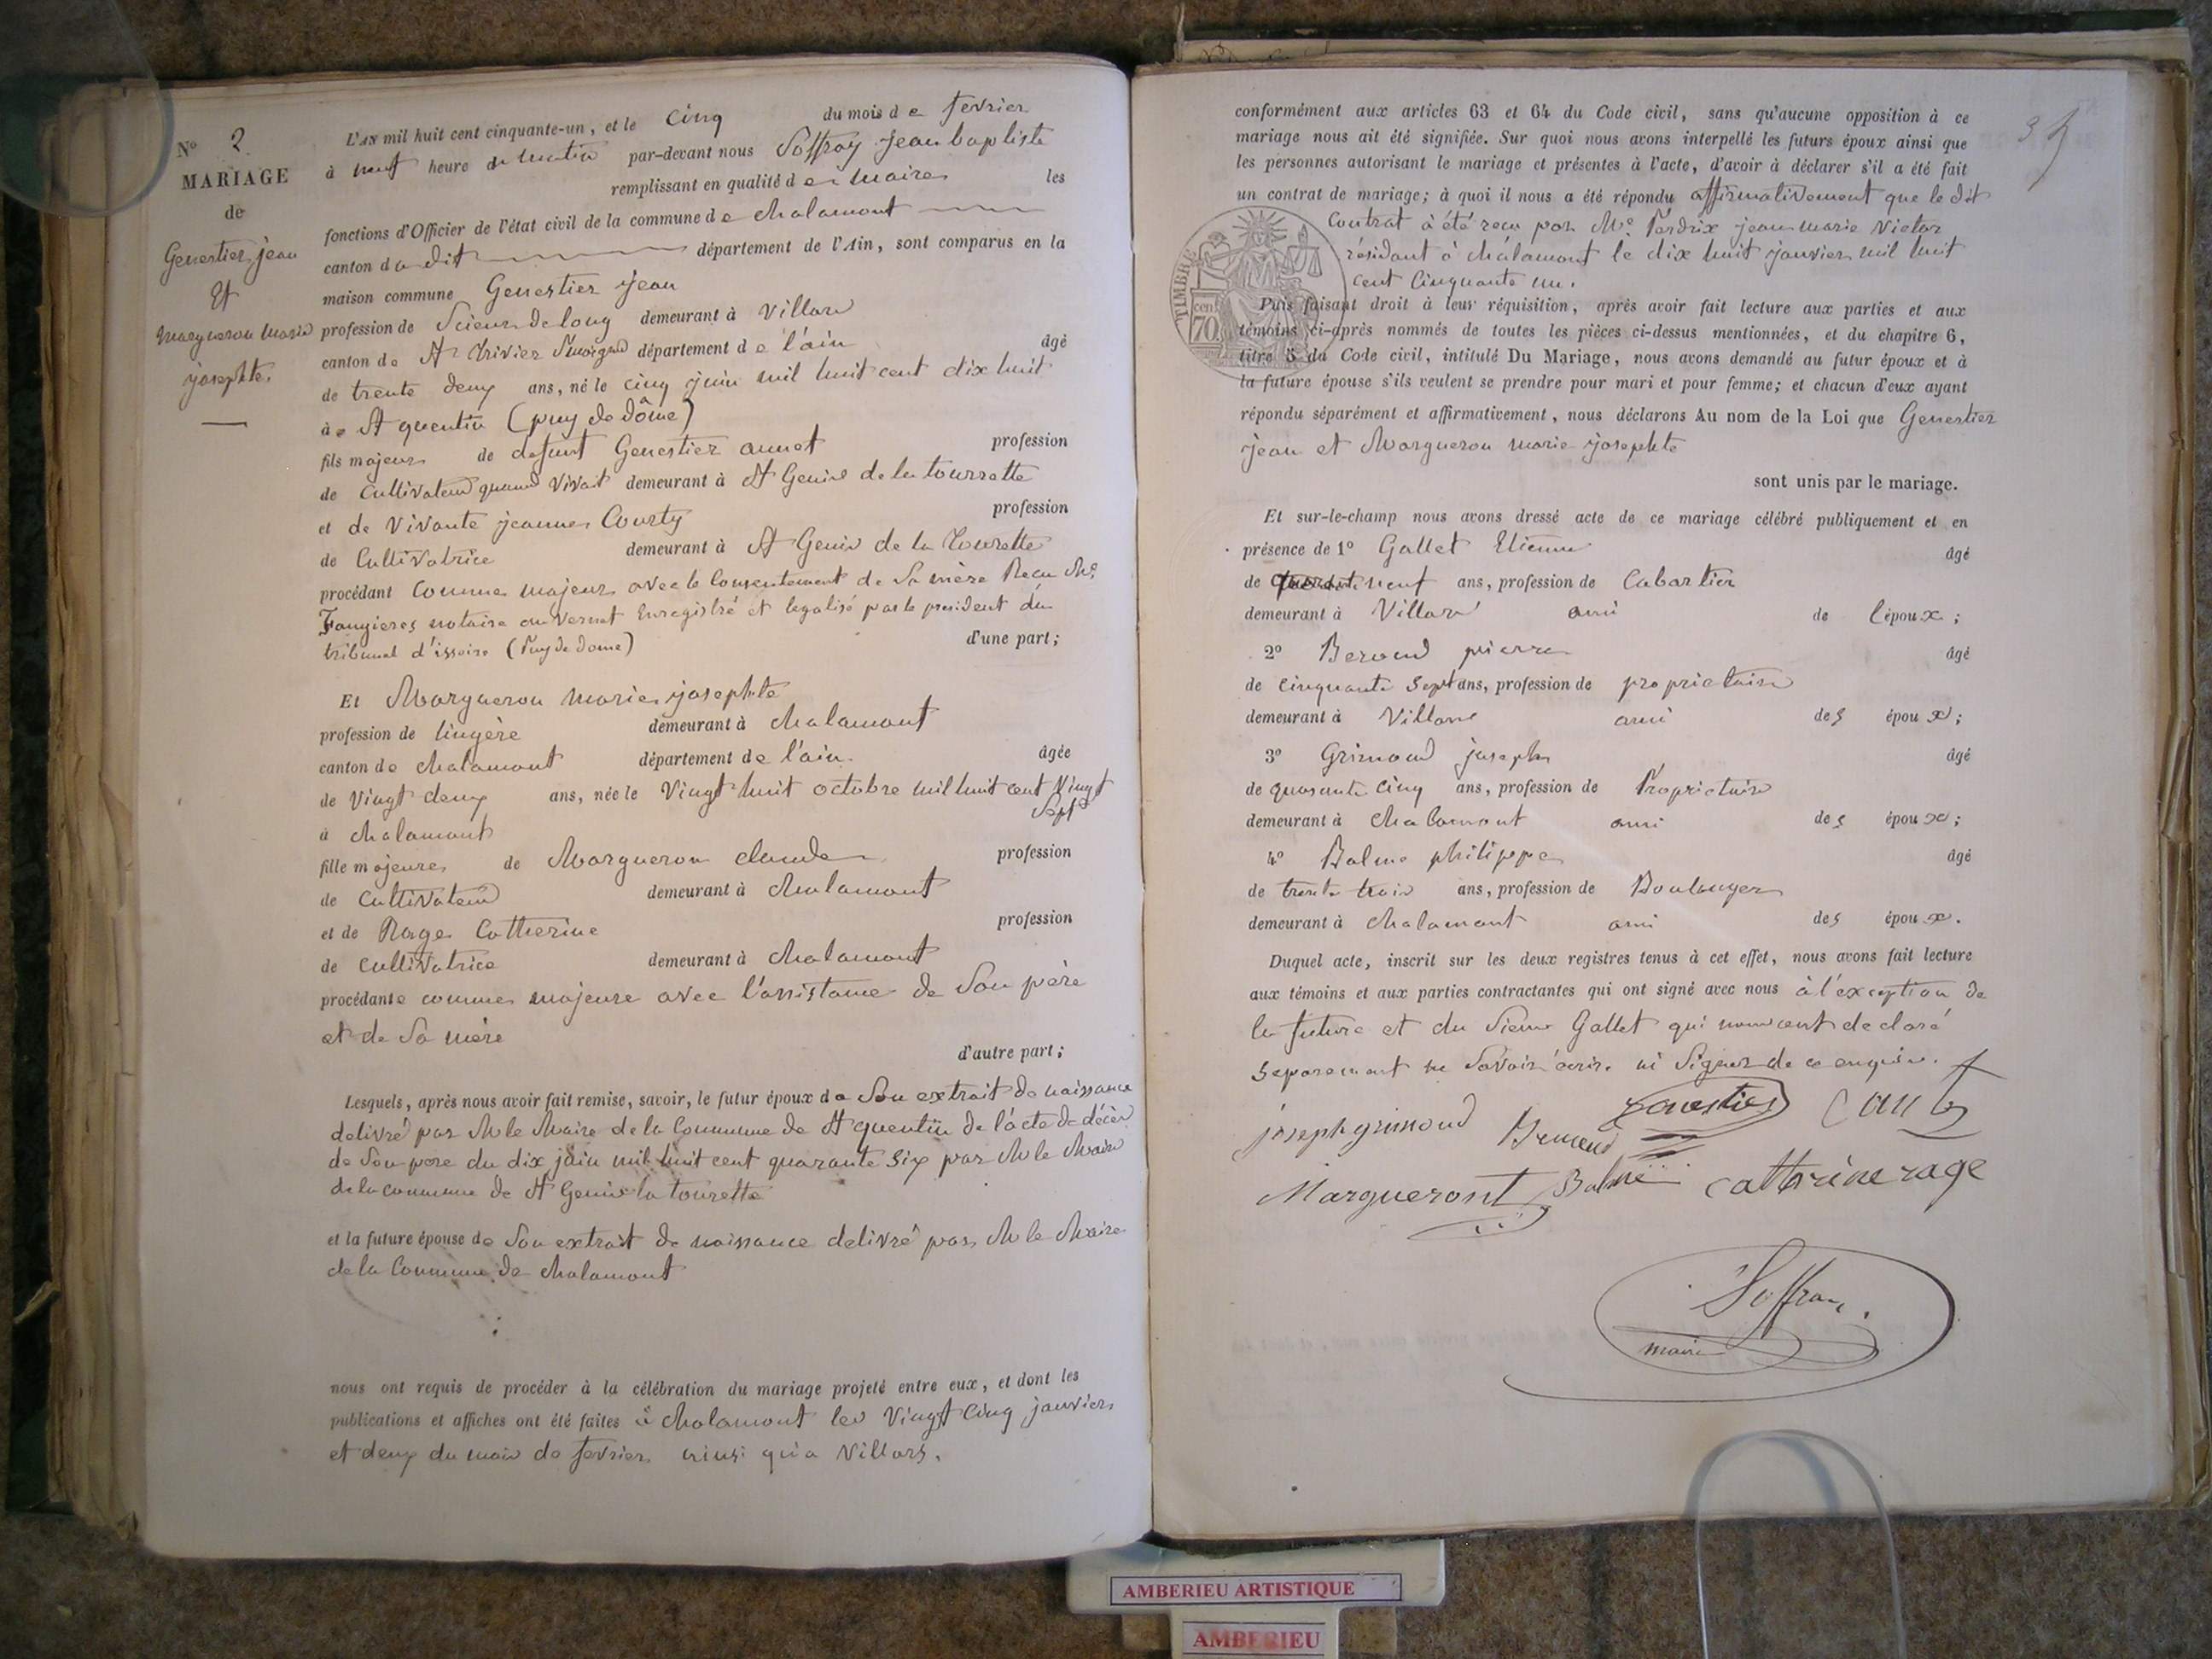 N° 2
MARIAGE
de
Genestier jean
Et
Margueron marie
josephte.
L'AN mil huit cent cinquante-un, et le cinq du mois de fevrier
à neuf heure du matin par-devant nous Soffray jean baptiste
remplissant en qualité de maire les
fonctions d'Officier de l'état civil de la commune de chalamont
canton du dit département de l'Ain, sont comparus en la
maison commune Genestier jean
profession de Scieur de long demeurant à Villars
canton de St Trivier département de l'ain âgé
de trente deux ans, né le cinq juin mil huit cent dix huit
à St quentin (puy de dôme)
fils majeur de defunt Genestier annet profession
de Cultivateur quand vivait demeurant à St Genis de la tourrette
et de Vivante jeanne Courty profession
de Cultivatrice demeurant à St Genis de la Tourette
procédant Comme majeur avec le Consentement de Sa mère Recu Me
Fougieres notaire au Vernet Enregistré et legalisé par le president du
tribunal d'issoire (Puy de dome) d'une part;
Et Margueron marie josephte
profession de lingère demeurant à chalamont
canton de chalamont département de l'ain. âgée
de Vingt deux ans, née le Vingt huit octobre mil huit cent Vingt
Sept
à chalamont
fille majeure de Margueron claude profession
de Cultivateur demeurant à chalamont
et de Rage Catherine profession
de Cultivatrice demeurant à chalamont
procédante comme majeure avec l'assistance de Son père
et de Sa mère
d'autre part;
Lesquels, après nous avoir fait remise, savoir, le futur époux de Son extrait de naissance
delivré par M le Maire de la Commune de St quentin de l'acte de décès
de Son père du dix juin mil huit cent quarante Six par M le Maire
de la commune de St Genis la tourette
et la future épouse de Son extrait de naissance delivré par M le Maire
de la Commune de chalamont
nous ont requis de procéder à la célébration du mariage projeté entre eux, et dont les
publications et affiches ont été faites à chalamont les Vingt Cinq janvier
et deux du mois de fevrier ainsi qu'a Villars.
conformément aux articles 63 et 64 du Code civil, sans qu'aucune opposition à ce
mariage nous ait été signifiée. Sur quoi nous avons interpellé les futurs époux ainsi que
les personnes autorisant le mariage et présentes à l'acte, d'avoir à déclarer s'il a été fait
un contrat de mariage; à quoi il nous a été répondu affirmativement que le dit
Contrat à été recu par Me Perdrix jean marie Victor
résidant à chalamont le dix huit janvier mil huit
cent Cinquante un.
TIMBRE
70 cent
Puis faisant droit à leur réquisition, après avoir fait lecture aux parties et aux
témoins ci-après nommés de toutes les pièces ci-dessus mentionnées, et du chapitre 6,
titre 5 du Code civil, intitulé Du Mariage, nous avons demandé au futur époux et à
la future épouse s'ils veulent se prendre pour mari et pour femme; et chacun d'eux ayant
répondu séparément et affirmativement, nous déclarons Au nom de la Loi que Genestier
jean et Margueron marie josephte
sont unis par le mariage.
Et sur-le-champ nous avons dressé acte de ce mariage célébré publiquement et en
présence de 1° Gallet Etienne âgé
de neuf ans, profession de Cabartier
demeurant à Villars ami de l'époux;
2° Beroud pierre âgé
de cinquante Sept ans, profession de proprietaire
demeurant à Villars ami des époux;
3° Grimoud joseph âgé
de quarante cinq ans, profession de Proprietaire
demeurant à Chalamont ami des époux;
4° Balme philippe âgé
de trente trois ans, profession de Boulanger
demeurant à chalamont ami des époux.
Duquel acte, inscrit sur les deux registres tenus à cet effet, nous avons fait lecture
aux témoins et aux parties contractantes qui ont signé avec nous à l'exception de
la future et du Sieur Gallet qui nous ont declaré
Separement ne Savoir écrire ni Signer de ce enquis.
joseph grimoud Beroud Genestier
Margueront Balme catherine rage
Soffray
maire
AMBERIEU ARTISTIQUE
AMBERIEU